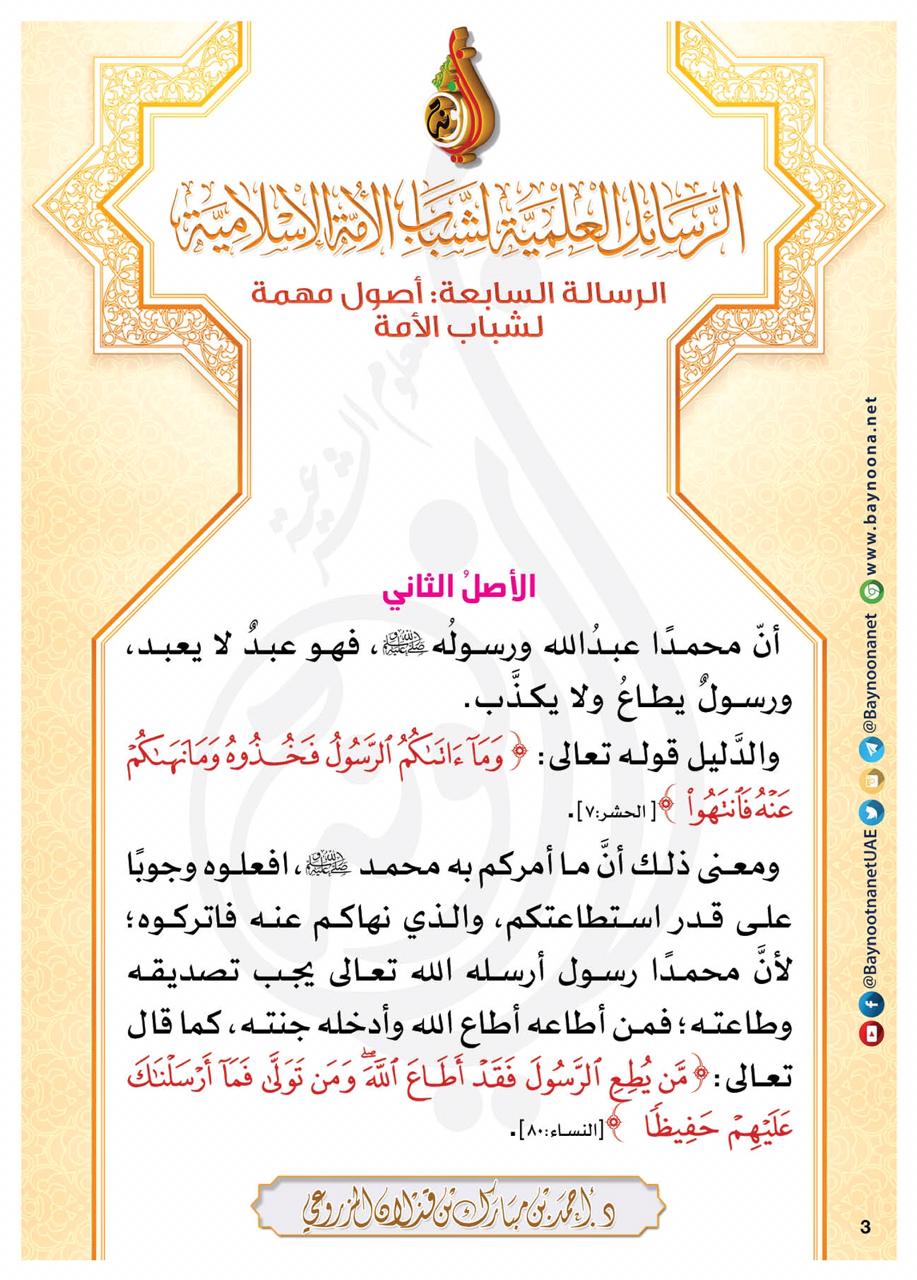 الرسائل العلمية لشباب الأمة الإسلامية
الرسالة السابعة: أصول مهمة
لشباب الأمة
العلوم الشرعية
الأصلُ الثاني
أنّ محمدًا عبدُالله ورسولُه ﷺ، فهو عبدٌ لا يعبد،
ورسولٌ يطاعُ ولا يكذَّب.
والدَّليل قوله تعالى: ﴿ وَمَآ ءَاتَىٰكُمُ ٱلرَّسُولُ فَخُذُوهُ وَمَا نَهَىٰكُمْ
عَنْهُ فَٱنتَهُوا۟ ﴾ [الحشر:٧].
ومعنى ذلك أنَّ ما أمركم به محمد ﷺ، افعلوه وجوبًا
على قدر استطاعتكم، والذي نهاكم عنه فاتركوه؛
لأنَّ محمدًا رسول أرسله الله تعالى يجب تصديقه
وطاعته؛ فمن أطاعه أطاع الله وأدخله جنته، كما قال
تعالى: ﴿ مَّن يُطِعِ ٱلرَّسُولَ فَقَدْ أَطَاعَ ٱللَّهَ ۖ وَمَن تَوَلَّىٰ فَمَآ أَرْسَلْنَٰكَ
عَلَيْهِمْ حَفِيظًا ﴾ [النساء:٨٠].
د. أحمد بن مبارك بن قذلان المزروعي
3
@BaynootnanetUAE
@Baynoonanet
www.baynoona.net